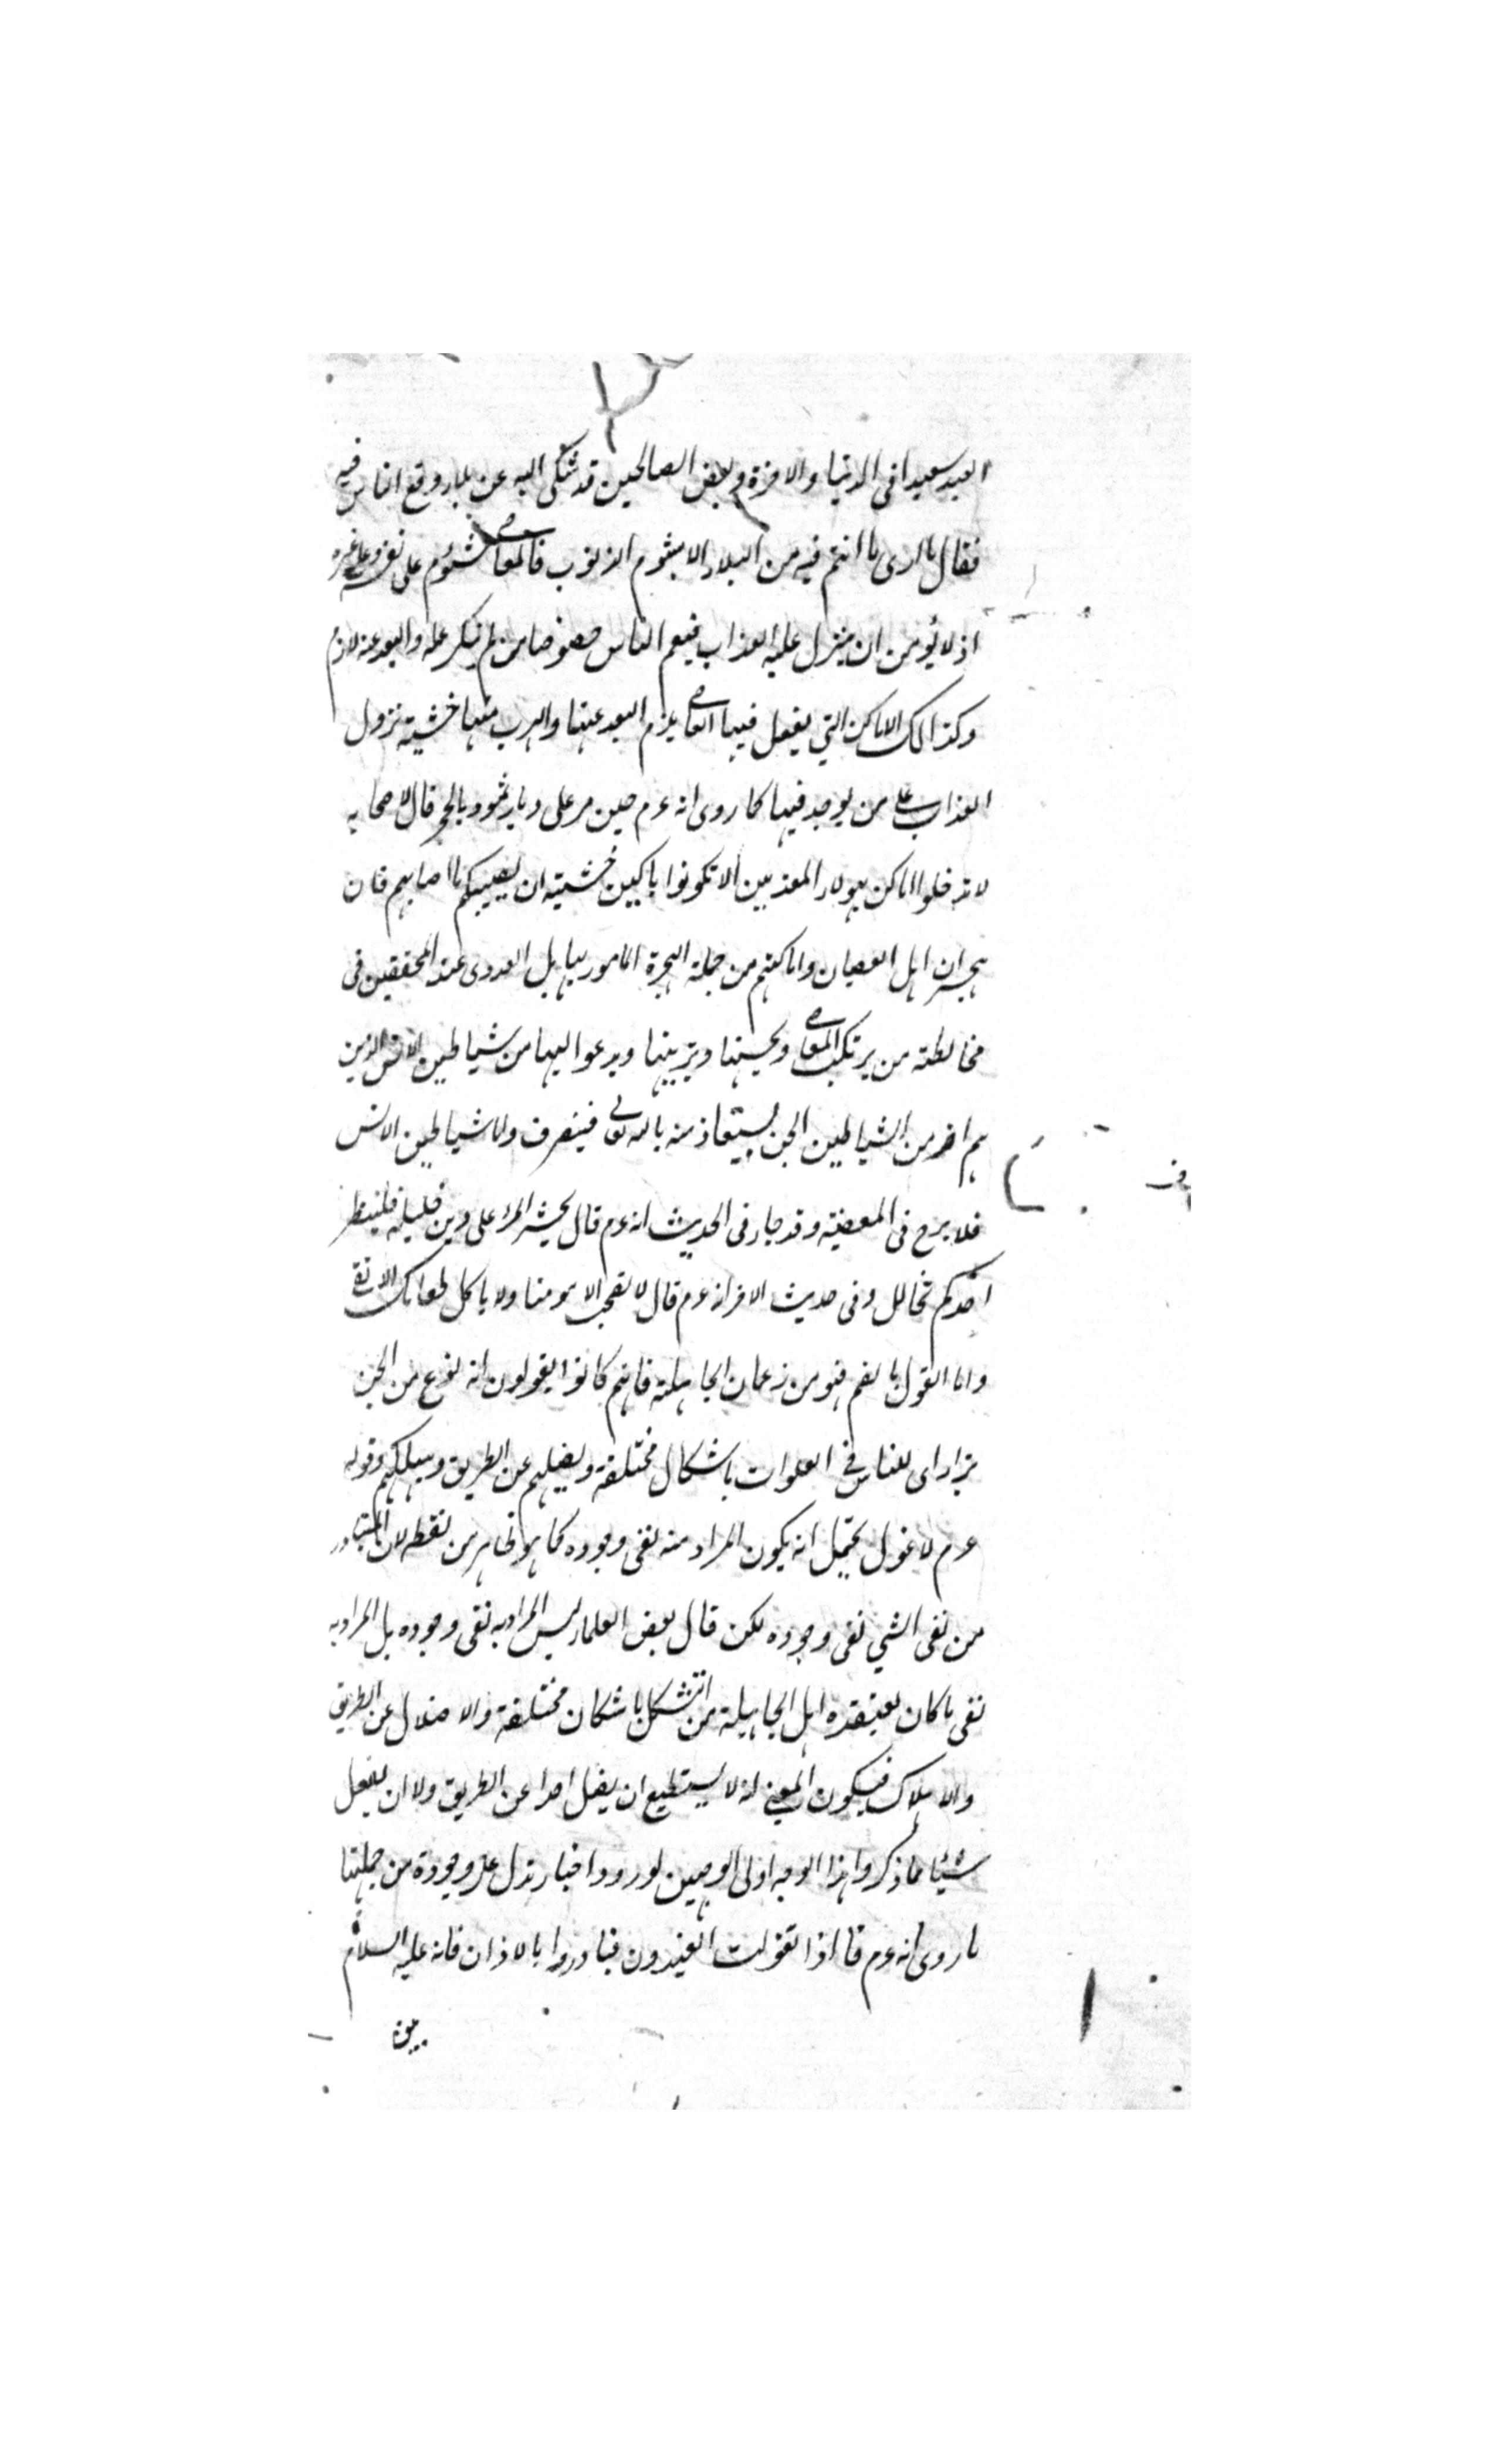 العبد سعيدا فى الدنيا والاخرة وبعض الصالحين قد شكى اليه عن بلاء وقع الناس فيه
فقال ما ارى ما انتم فيه من البلاء الا بشوم الذنوب فالمعاصى شؤم على نفسه وعلى غيره
اذ لا يؤمن ان ينزل عليه العذاب فيعم الناس خصوصا من لم ينكر عمله والبعد عنه لازم
وكذالك الاماكن التي يفعل فيها المعاصى يلزم البعد عنها والهرب منها خشية نزول
العذاب على من يوجد فيها كما روى انه عم حين مر على ديار ثمود بالحجر قال لاصحابه
لا تدخلوا اماكن هولاء المعذبين الا تكونوا باكين خشية ان يصيبكم ما اصابهم فان
هجران اهل العصيان واماكنهم من جملة الهجرة المامور بها بل العدوى عند المحققين فى
مخالطة من يرتكب المعاصى ويحسنها ويزينها ويدعو اليها من شياطين الانس الذين
هم اضر من الشياطين الجن يستعاذ منه بالله تعالى فينصرف واما شياطين الانس
فلا يبرح فى المعصية وقد جاء فى الحديث انه عم قال يحشر المرء على دين خليله فلينظر
احدكم تخالل وفى حديث الاخر انه عم قال لا تصحب الا مومنا ولا ياكل طعامك الا تقى
واما القول بالضم فهو من زعمات الجاهلية فانهم كانوا يقولون انه نوع من الجن
يتراراى للناس فى الفلوات باشكال مختلفة ويضلهم عن الطريق ويهلكهم وقوله
عم لا غول يحتمل انه يكون المراد منه نفى وجوده كما هو ظاهر من لفظه لان المتبادر
من نفى الشي نفى وجوده لكن قال بعض العلماء ليس المراد به نفى وجوده بل المراد به
نفى ما كان يعتقده اهل الجاهلية من التشكل باشكال مختلفة والاضلال عن الطريق
والاهلاك فيكون المعنى انه لا يستطيع ان يضل احدا عن الطريق ولا ان يفعل
شيئا مما ذكروا هذا الوجه اولى الوجهين لورود اخبار تدل على وجوده من جملتها
ما روى انه عم قال اذا تغولت الغيلان فبادروا بالاذان فانه عليه السلام
بين